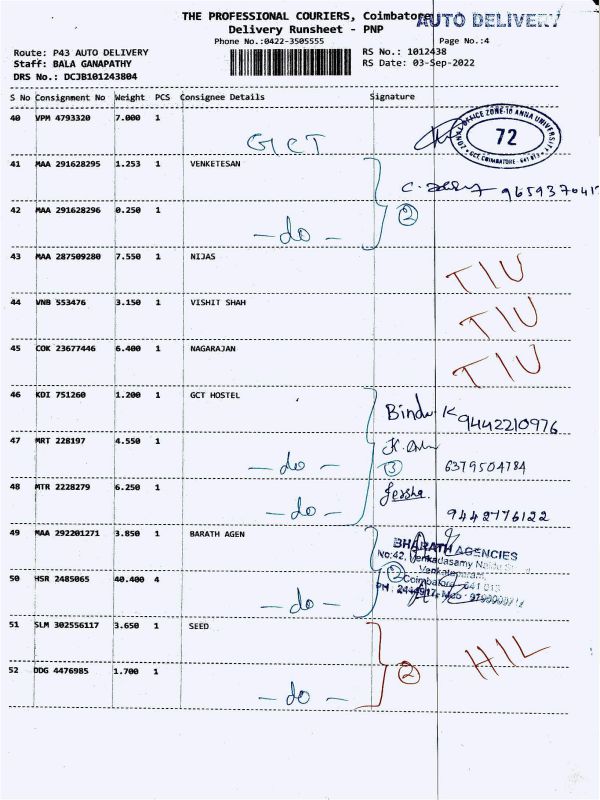 THE PROFESSIONAL COURIERS, Coimbatore
AUTO DELIVERY
Delivery Runsheet - PNP
Phone No.:0422-3505555
Page No.:4
Route: P43 AUTO DELIVERY
RS No.: 1012438
Staff: BALA GANAPATHY
RS Date: 03-Sep-2022
DRS No.: DCJB101243804
S No Consignment No Weight PCS Consignee Details Signature
40 VPM 4793320 7.000 1
GCT
ZONAL OFFICE ZONE-10 ANNA UNIVERSITY
72
GCE COIMBATORE - 641 013
41 MAA 291628295 1.253 1 VENKETESAN
42 MAA 291628296 0.250 1
- do -
2
43 MAA 287509280 7.550 1 NIJAS
TIU
44 VNB 553476 3.150 1 VISHIT SHAH
TIU
45 COK 23677446 6.400 1 NAGARAJAN
TIU
46 KDI 751260 1.200 1 GCT HOSTEL
Bindu K 9442210976
47 MRT 228197 4.550 1
- do -
3
6379504784
48 MTR 2228279 6.250 1
- do -
Jessha
9442776122
49 MAA 292201271 3.850 1 BARATH AGEN
BHARATH AGENCIES
No:42, Venkadasamy Naidu
Venkatapuram,
50 HSR 2485065 40.400 4
- do -
2
Coimbatore - 641 013
51 SLM 302556117 3.650 1 SEED
HIL
52 DDG 4476985 1.700 1
- do -
2